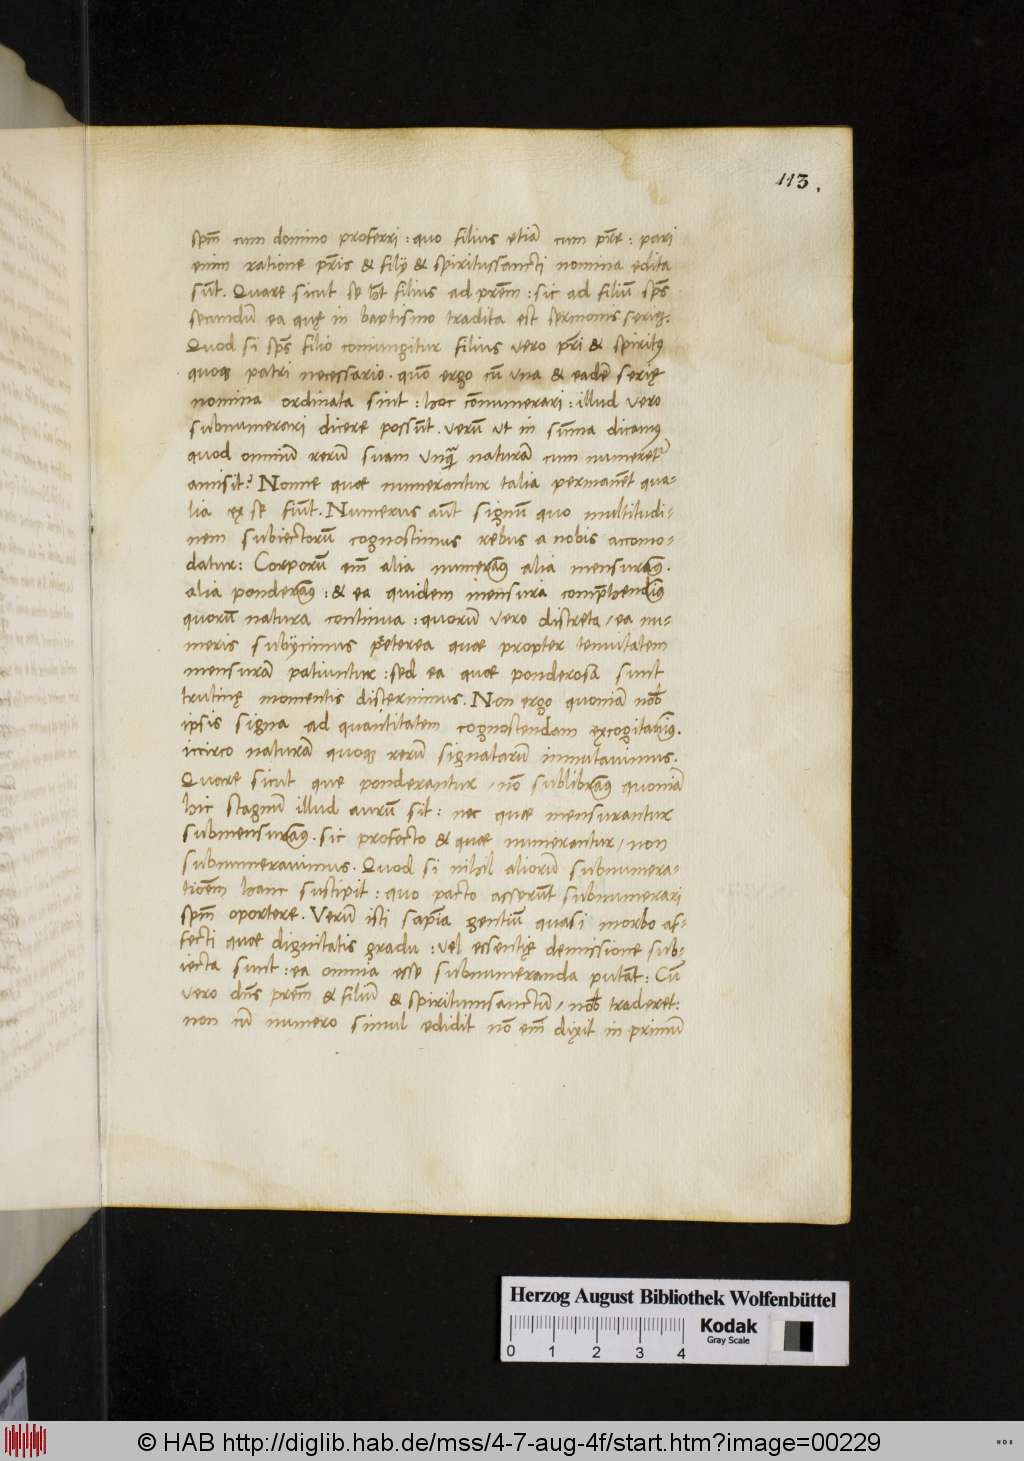 113.
spm̄ cum domino proferri : quo filius etiā cum pr̄e : pari
enim ratione pr̄is & filij & spiritussancti nomina edita
sūt. Quare sicut se hēt filius ad prēm : sic ad filiū sp̄s
secundū ea quę in baptismo tradita est sermonis serię.
Quod si sp̄s filio coniungitur filius vero pr̄i & spiritus
quoq; patri necessario. quō ergo cū una & eadē serię
nomina ordinata sint : hoc cōnumerari : illud vero
subnumerari dicere possūt. verū ut in sūma dicamus
quod omniū rerū suam unquā naturā cum numeretur
amisit? Nonne quae numerantur talia permanēt qua-
lia ex se fiūt. Numerus aūt signū quo multitudi-
nem subiectorū cognoscimus rebus a nobis accomo-
datur: Corporū em̄ alia numeramus alia mensuramus.
alia ponderamus : & ea quidem mensura comprehendimus
quorū natura continua : quorū vero discreta / ea nu-
meris subijcimus pręterea quae propter tenuitatem
mensurā patiuntur : sed ea quae ponderosa sunt
trutinę momentis discernimus. Non ergo quoniā nob̄
ipsis signa ad quantitatem cognoscendam excogitavimus.
iccirco naturā quoq; rerū signatarū inmutavimus.
Quare sicut que ponderantur / nō sublibramus quoniā
hic stagnū illud aurū sit : nec quae mensurantur
submensuramus. sic profecto & quae numerantur / non
subnumeravimus. Quod si nihil aliorū subnumera-
tiōem hanc suscipit : quo pacto asserūt subnumerari
spm̄ oportere. Verū isti sapīa gentiū quasi morbo af-
fecti quae dignitatis gradu : vel essentię demissione sub-
iecta sunt : ea omnia esse subnumeranda putāt : Cū
vero dn̄s prēm & filiū & spiritumsanctū / nob̄ traderet:
non cū numero simul edidit nō em̄ dixit in primū
Herzog August Bibliothek Wolfenbüttel
Kodak
Gray Scale
0 1 2 3 4
© HAB http://diglib.hab.de/mss/4-7-aug-4f/start.htm?image=00229